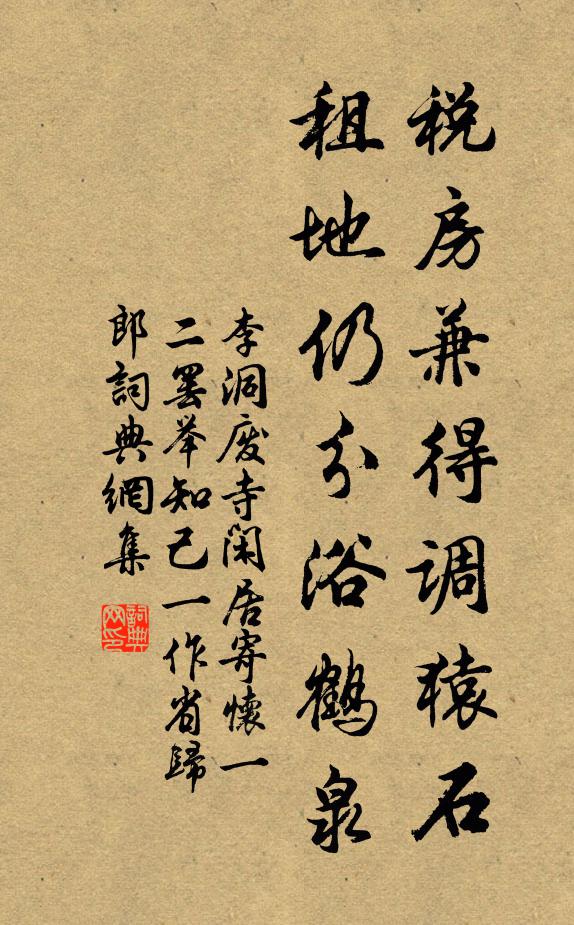 税房兼得调猿石
租地仍分浴鹤泉
李洞废寺闲居寄懷一
二罢举知己一作省歸
郎詞典網集
詞典网印